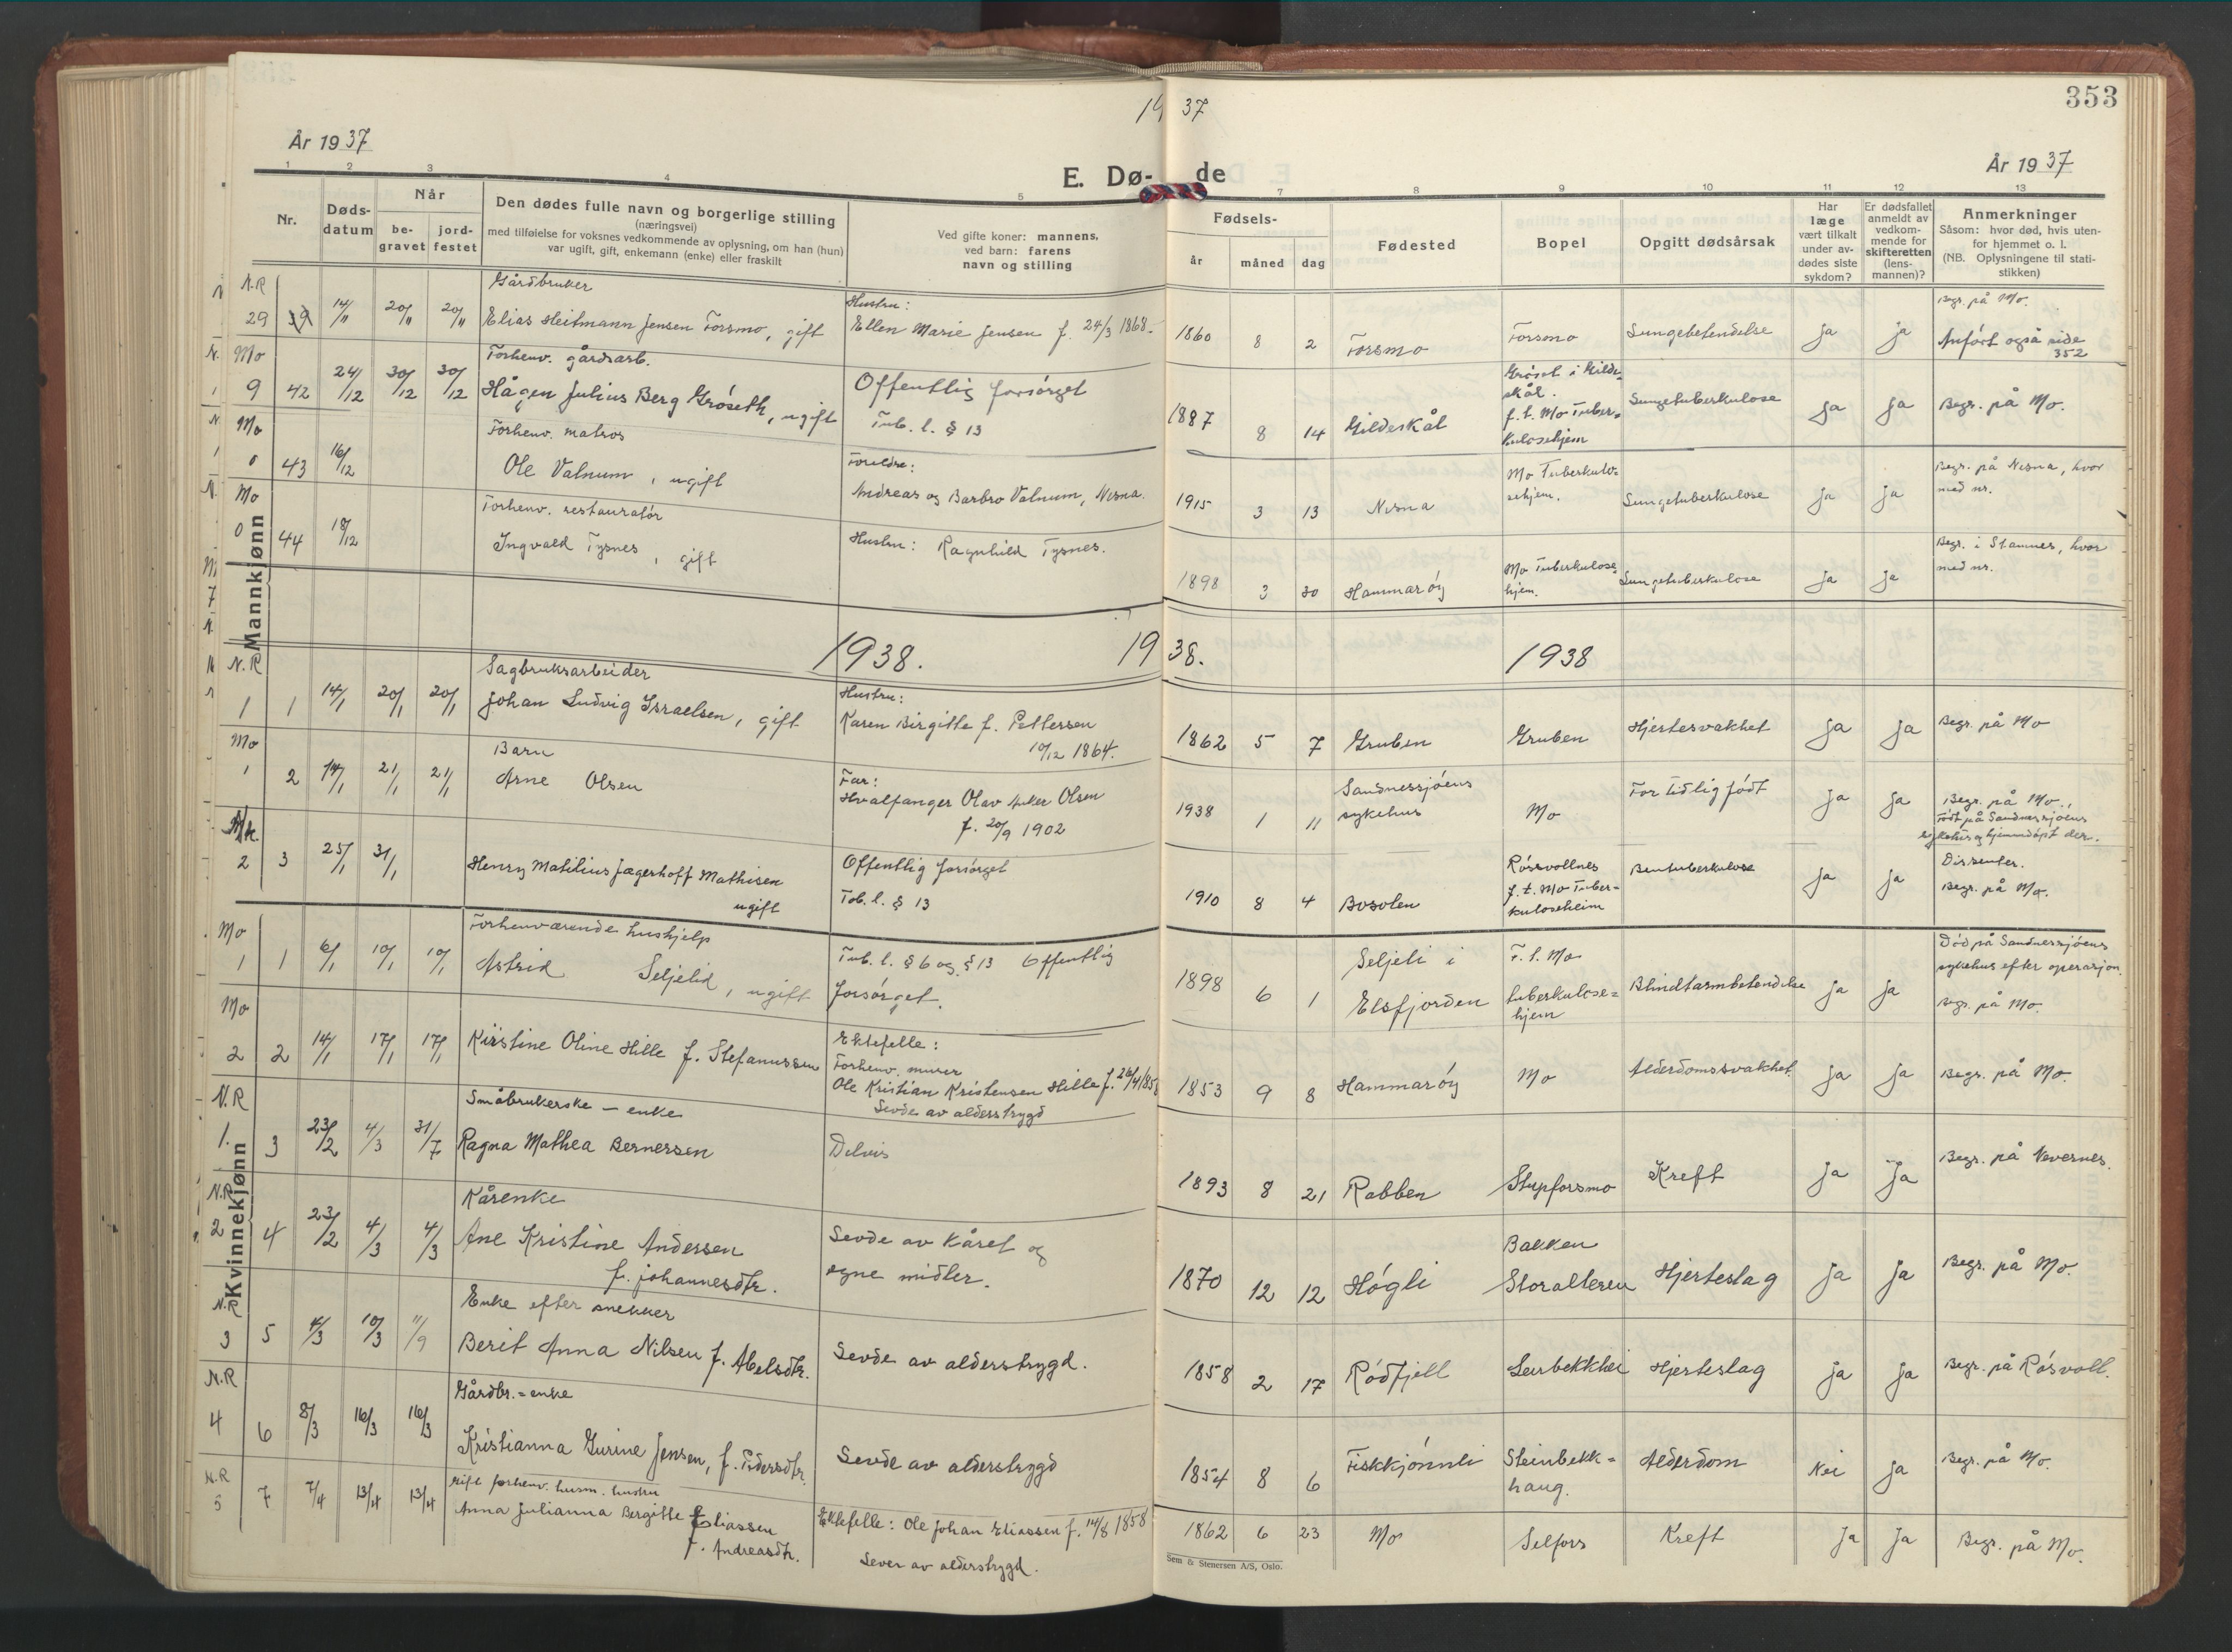 353
19 37
År 1937
År 1937
E. Dø- de
1 2 3 4 5 7 8 9 10 11 12 13
Nr.
Døds-
datum
Når
be-
gravet
jord-
festet
Den dødes fulle navn og borgerlige stilling
(næringsvei)
med tilføielse for voksnes vedkommende av oplysning, om han (hun)
var ugift, gift, enkemann (enke) eller fraskilt
Ved gifte koner: mannens,
ved barn: farens
navn og stilling
Fødsels-
år måned dag
Fødested
Bopel
Opgitt dødsårsak
Har
læge
vært tilkalt
under av-
dødes siste
sykdom?
Er dødsfallet
anmeldt av
vedkom-
mende for
skifteretten
(lens-
mannen)?
Anmerkninger
Såsom: hvor død, hvis uten-
for hjemmet o. l.
(NB. Oplysningene til stati-
stikken)
Mannkjønn
N.R Gårdbruker Hustru: Begr. på Mo.
29 39 14/11 20/11 20/11 Elias Heitmann Jensen Forsmo, gift Ellen Marie Jensen f. 24/3 1868. 1860 8 2 Forsmo Forsmo Lungebetendelse ja ja Anført også side
352
Mo Forhenv. gårdsarb. Grøset i Gilde-
skål.
9 42 24/12 30/12 30/12 Hågen Julius Berg Grøseth, ugift Offentlig forsörget 1887 8 14 Gildeskål f. t. Mo Tuber- Lungetuberkulose ja ja Begr. på Mo.
Tub. l. § 13 kulosehjem
Mo Forhenv. matros Foreldre: Mo Tuberkulo- Begr. på Nesna, hvor
0 43 16/12 Ole Valnum, ugift Andreas og Barbro Valnum, Nesna. 1915 3 13 Nesna sehjem. Lungetuberkulose ja ja med nr.
Mo Forhenv. restauratör Begr. i Stamnes, hvor
0 44 18/12 Ingvald Tysnes, gift Hustru: Ragnhild Tysnes. 1898 3 30 Hammaröy Mo Tuberkulose- Lungetuberkulose ja ja med nr.
hjem.
1938. 1938. 1938
N.R Sagbruksarbeider Hustru:
1 1 14/1 20/1 20/1 Johan Ludvig Israelsen, gift Karen Birgitte f. Pettersen 1862 5 7 Gruben Gruben Hjertesvakhet ja ja Begr. på Mo
10/12 1864.
Mo Barn Far: Sandnessjöens
1 2 14/1 21/1 21/1 Arne Olsen Hvalfanger Olav Olsen 1938 1 11 sykehus Mo For tidlig födt ja ja Begr. på Mo.
f. 20/9 1902 Födt på Sandnessjöens
sykehus og hjemmedöpt der.
2 3 25/1 31/1 Henry Matilius Jægerhoff Mathisen Offentlig forsörget 1910 8 4 Bosolen Rössvollnes Bentuberkulose ja ja Dissenter.
ugift Tub. l. § 13 f. t. Mo Tuber- Begr. på Mo.
kuloseheim
Kvinnekjønn
Mo Forhenværende hushjelp Död på Sandnessjöens
1 1 6/1 10/1 10/1 Astrid Seljelid, ugift Tub. l. § 6 og § 13 Offentlig 1898 6 1 Seljeli i F. t. Mo Blindtarmbetendelse ja ja sykehus efter operasjon.
forsörget. Elsfjorden tuberkulose- Begr. på Mo.
hjem
Mo Ektefelle:
2 2 14/1 17/1 17/1 Kirstine Oline Hille f. Stefanussen Forhenv. murer 1853 9 8 Hammaröy Mo Alderdomssvakhet. ja ja Begr. på Mo.
Ole Kristian Kristensen Hille f. 26/4 185
Levde av alderstrygd
N.R Småbrukerske - enke
1. 3 23/2 4/3 31/7 Ragna Mathea Bernersen Delvis 1893 8 21 Rabben Stupforsmo Kreft ja ja Begr. på Nevernes.
N.R Kårenke
2 4 23/2 4/3 4/3 Ane Kristine Andersen Levde av kåret og 1870 12 12 Högli Bakken Hjerteslag ja ja Begr. på Mo.
f. Johannesdtr. egne midler. Storalteren
N.R Enke efter snekker
3 5 4/3 10/3 11/9 Berit Anna Nilsen f. Abelsdtr. Levde av alderstrygd. 1858 2 17 Rödfjell Leirbekkhei Hjerteslag ja ja Begr. på Rösvoll.
N.R Gårdbr.=enke
4 6 8/3 16/3 16/3 Kristianna Gurine Jensen, f. Pedersdtr. Levde av alderstrygd 1854 8 6 Fiskkjönnli Steinbekk= Alderdom Nei ja Begr. på Mo.
haug.
N.R gift forhenv. husm. hustru
5 7 7/4 13/4 13/4 Anna Julianna Bergitte Eliassen Ektefelle: Ole Johan Eliassen f. 14/8 1858 1862 6 23 Mo Selfors Kreft ja ja Begr. på Mo.
f. Andreasdtr. Lever av alderstrygd.
Sem & Stenersen A/S, Oslo.